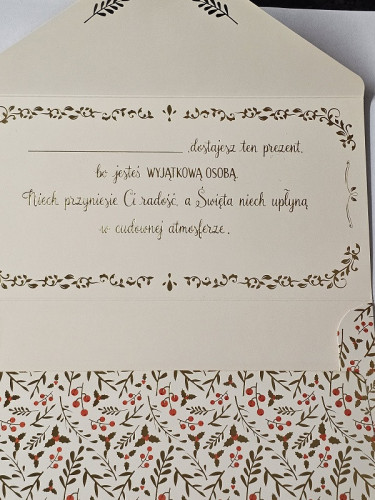 ____________ dostajesz ten prezent,
bo jesteś WYJĄTKOWĄ OSOBĄ.
Niech przyniesie Ci radość, a Święta niech upłyną
w cudownej atmosferze.